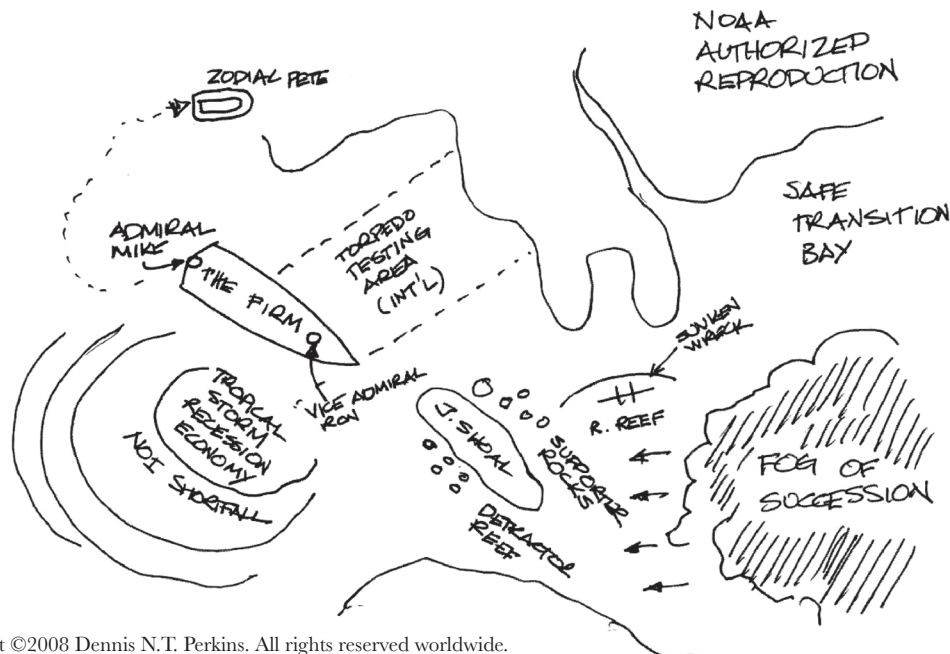 NOAA
AUTHORIZED
REPRODUCTION
ZODIAL PETE
SAFE
TRANSITION
BAY
ADMIRAL
MIKE
THE FIRM
TORPEDO
TESTING
AREA
(INT'L)
SUNKEN
WRECK
VICE ADMIRAL
RON
TROPICAL
STORM
RECESSION
ECONOMY
NOI
SHORTFALL
J. SHOAL
SUPPORTER
ROCKS
R. REEF
DETRACTOR
REEF
FOG OF
SUCCESSION
t ©2008 Dennis N.T. Perkins. All rights reserved worldwide.